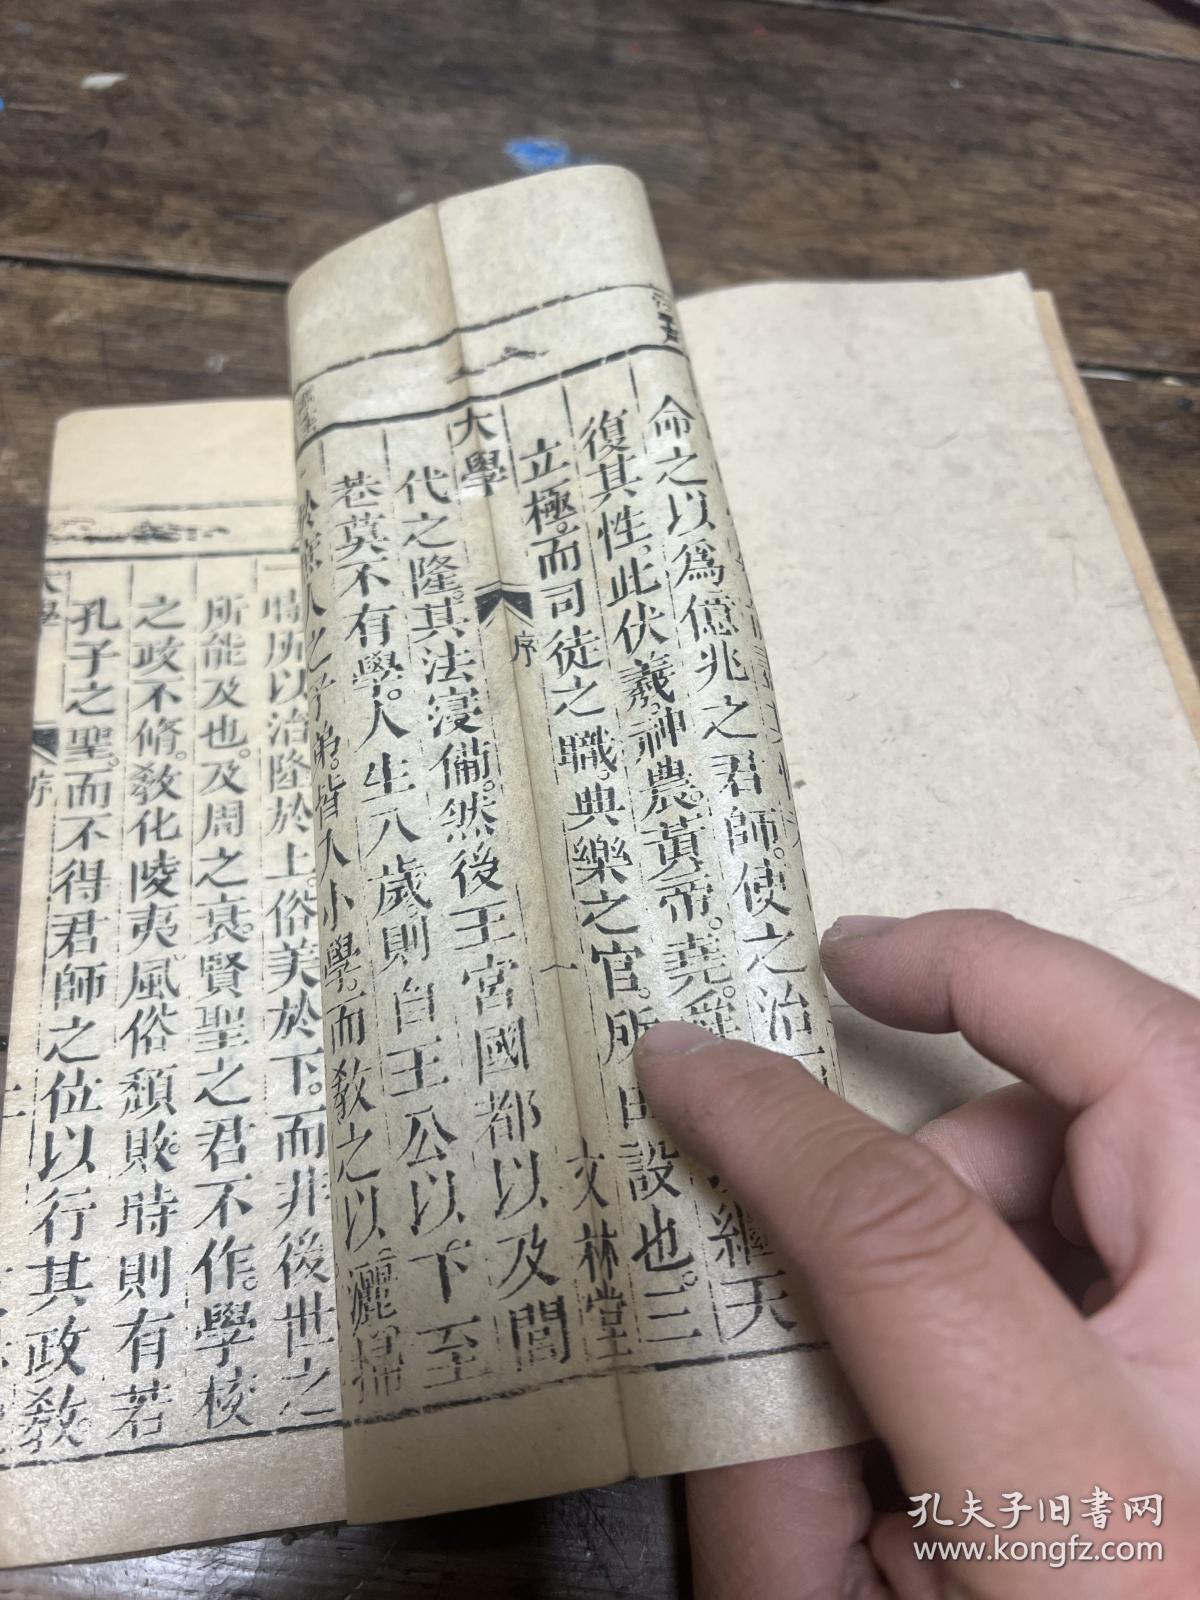 命之以爲億兆之君師。使之治
復其性。此伏羲。神農。黃帝。堯。舜
繼天
立極。而司徒之職。典樂之官。所由設也。三
大學
序
一
文林堂
代之隆。其法寖備。然後王宮國都以及閭
巷莫不有學。人生八歲。則自王公以下至
於庶人之子弟。皆入小學。而教之以灑掃
時所以治隆於上。俗美於下。而非後世之
所能及也。及周之衰。賢聖之君不作。學校
之政不脩。教化陵夷。風俗頹敗。時則有若
孔子之聖。而不得君師之位以行其政教
序
孔夫子旧书网
www.kongfz.com